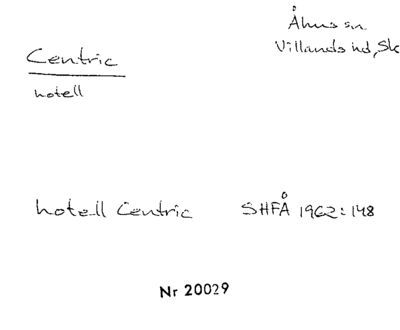 Åhus sn
Villands hd, Sk
Centric
hotell
hotell Centric SHFÅ 1962:148
Nr 20029